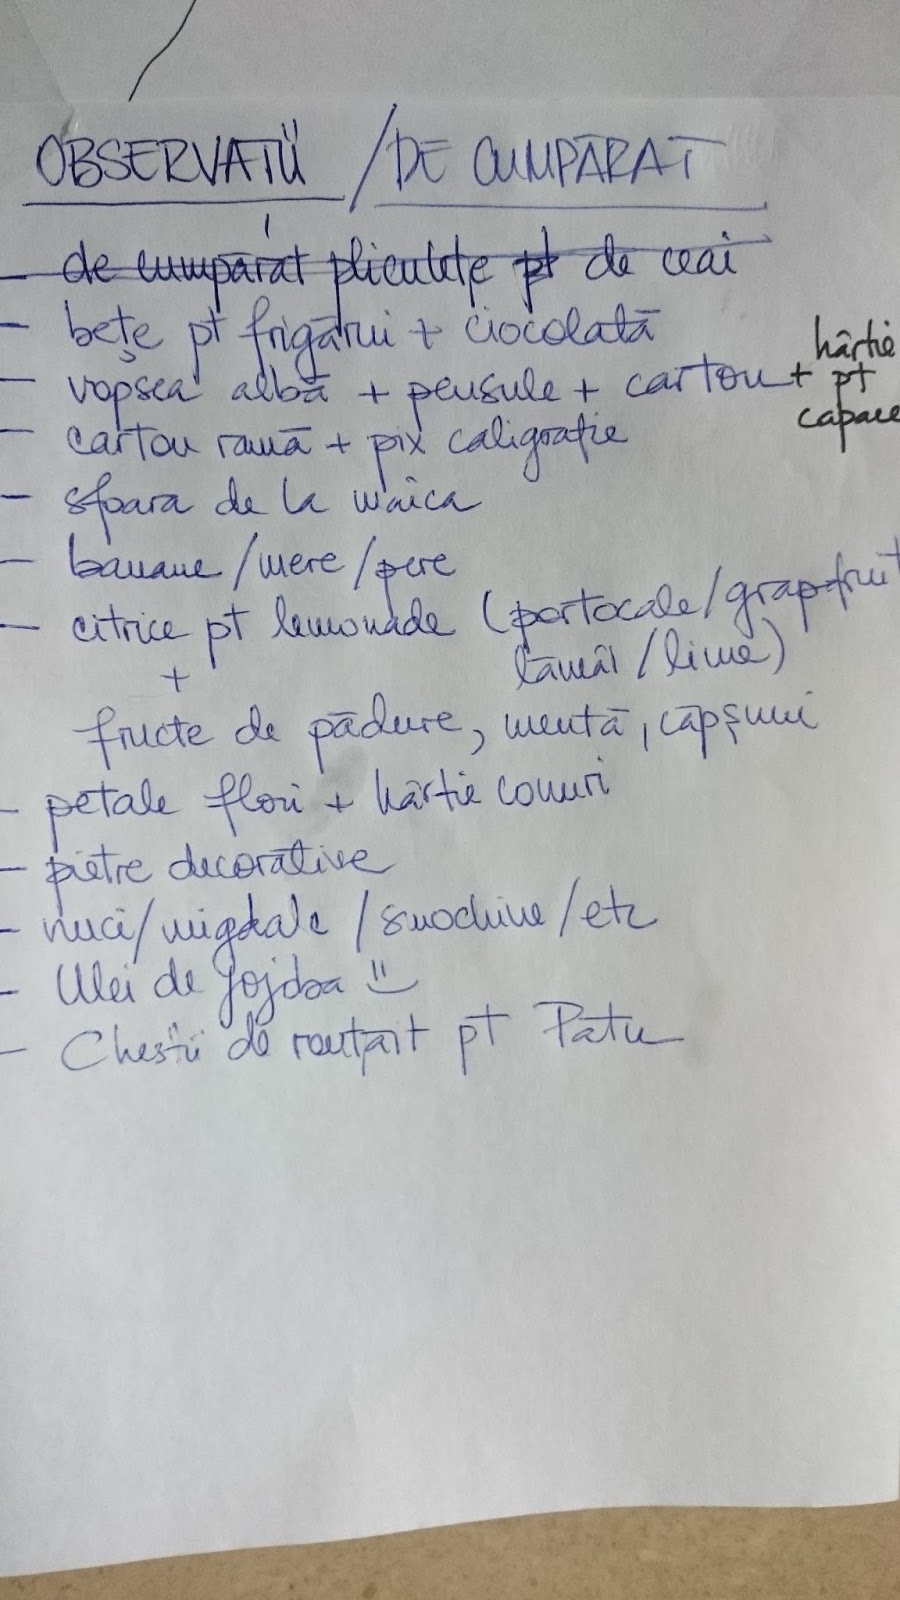 OBSERVAȚII / DE CUMPĂRAT
- de cumpărat pliculețe pt de ceai
- bețe pt frigărui + ciocolată
- vopsea albă + pensule + carton + hârtie pt capace
- carton ramă + pix caligrafie
- sfoara de la maica
- banane / mere / pere
- citrice pt lemonade (portocale / grapefruit
lămâi / lime)
+
fructe de pădure, mentă, căpșuni
- petale flori + hârtie conuri
- pietre decorative
- nuci / migdale / smochine / etc
- Ulei de jojoba
- Chestii de ronțăit pt Patu